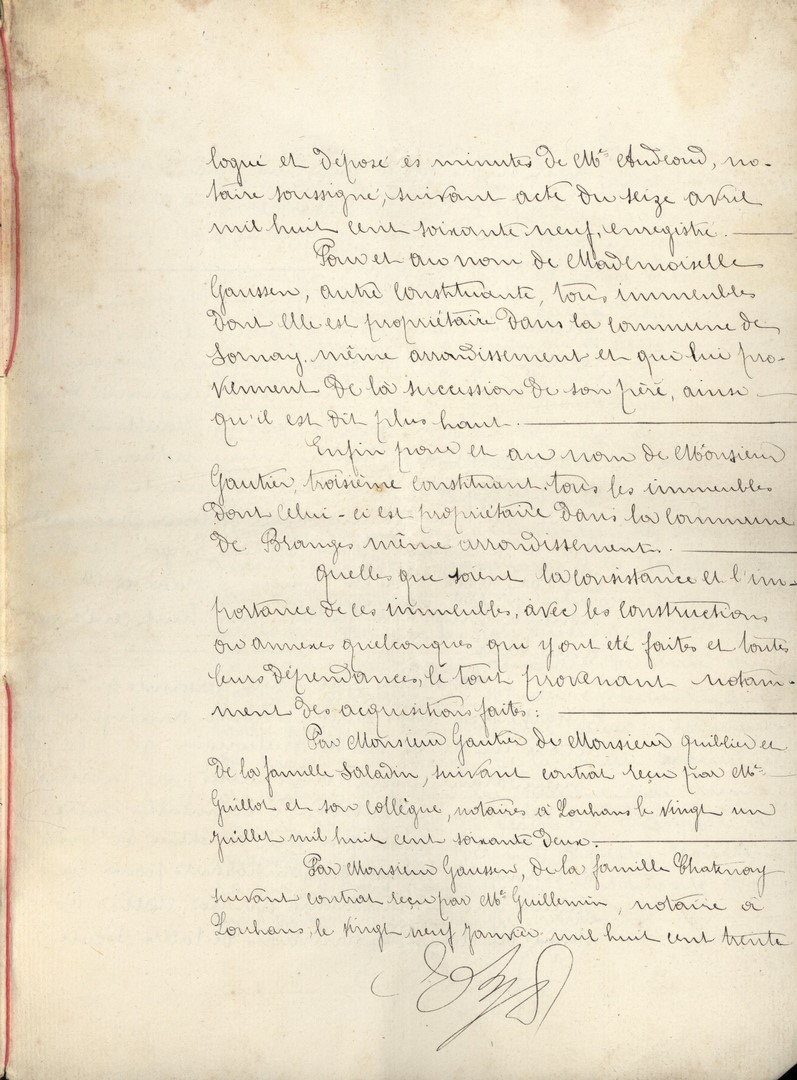 logué et déposé ès minutes de Me Audeoud, no-
taire soussigné, suivant acte du seize avril
mil huit cent soixante neuf, enregistré.
Pour et au nom de Mademoiselle
Gaussen, autre constituante, tous immeubles
dont elle est propriétaire dans la commune de
Sornay, même arrondissement et qui lui pro-
viennent de la succession de son père, ainsi
qu'il est dit plus haut.
Enfin pour et au nom de Monsieur
Gautier, troisième constituant, tous les immeubles
dont celui-ci est propriétaire dans la commune
de Branges même arrondissement.
Quelles que soient la consistance et l'im-
portance de ces immeubles, avec les constructions
ou annexes quelconques qui y ont été faites et toutes
leurs dépendances, le tout provenant notam-
ment des acquisitions faites :
Par Monsieur Gautier de Monsieur Quiblier et
de la famille Saladin, suivant contrat reçu par Me
Guillot et son collègue, notaires à Louhans le vingt un
juillet mil huit cent soixante deux.
Par Monsieur Gaussen, de la famille Chatenay
suivant contrat reçu par Me Guillemin, notaire à
Louhans, le vingt neuf janvier mil huit cent trente